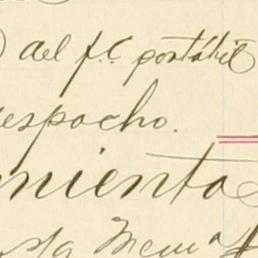 ) del f.c. portátil
espacho.
mienta
sta Mem